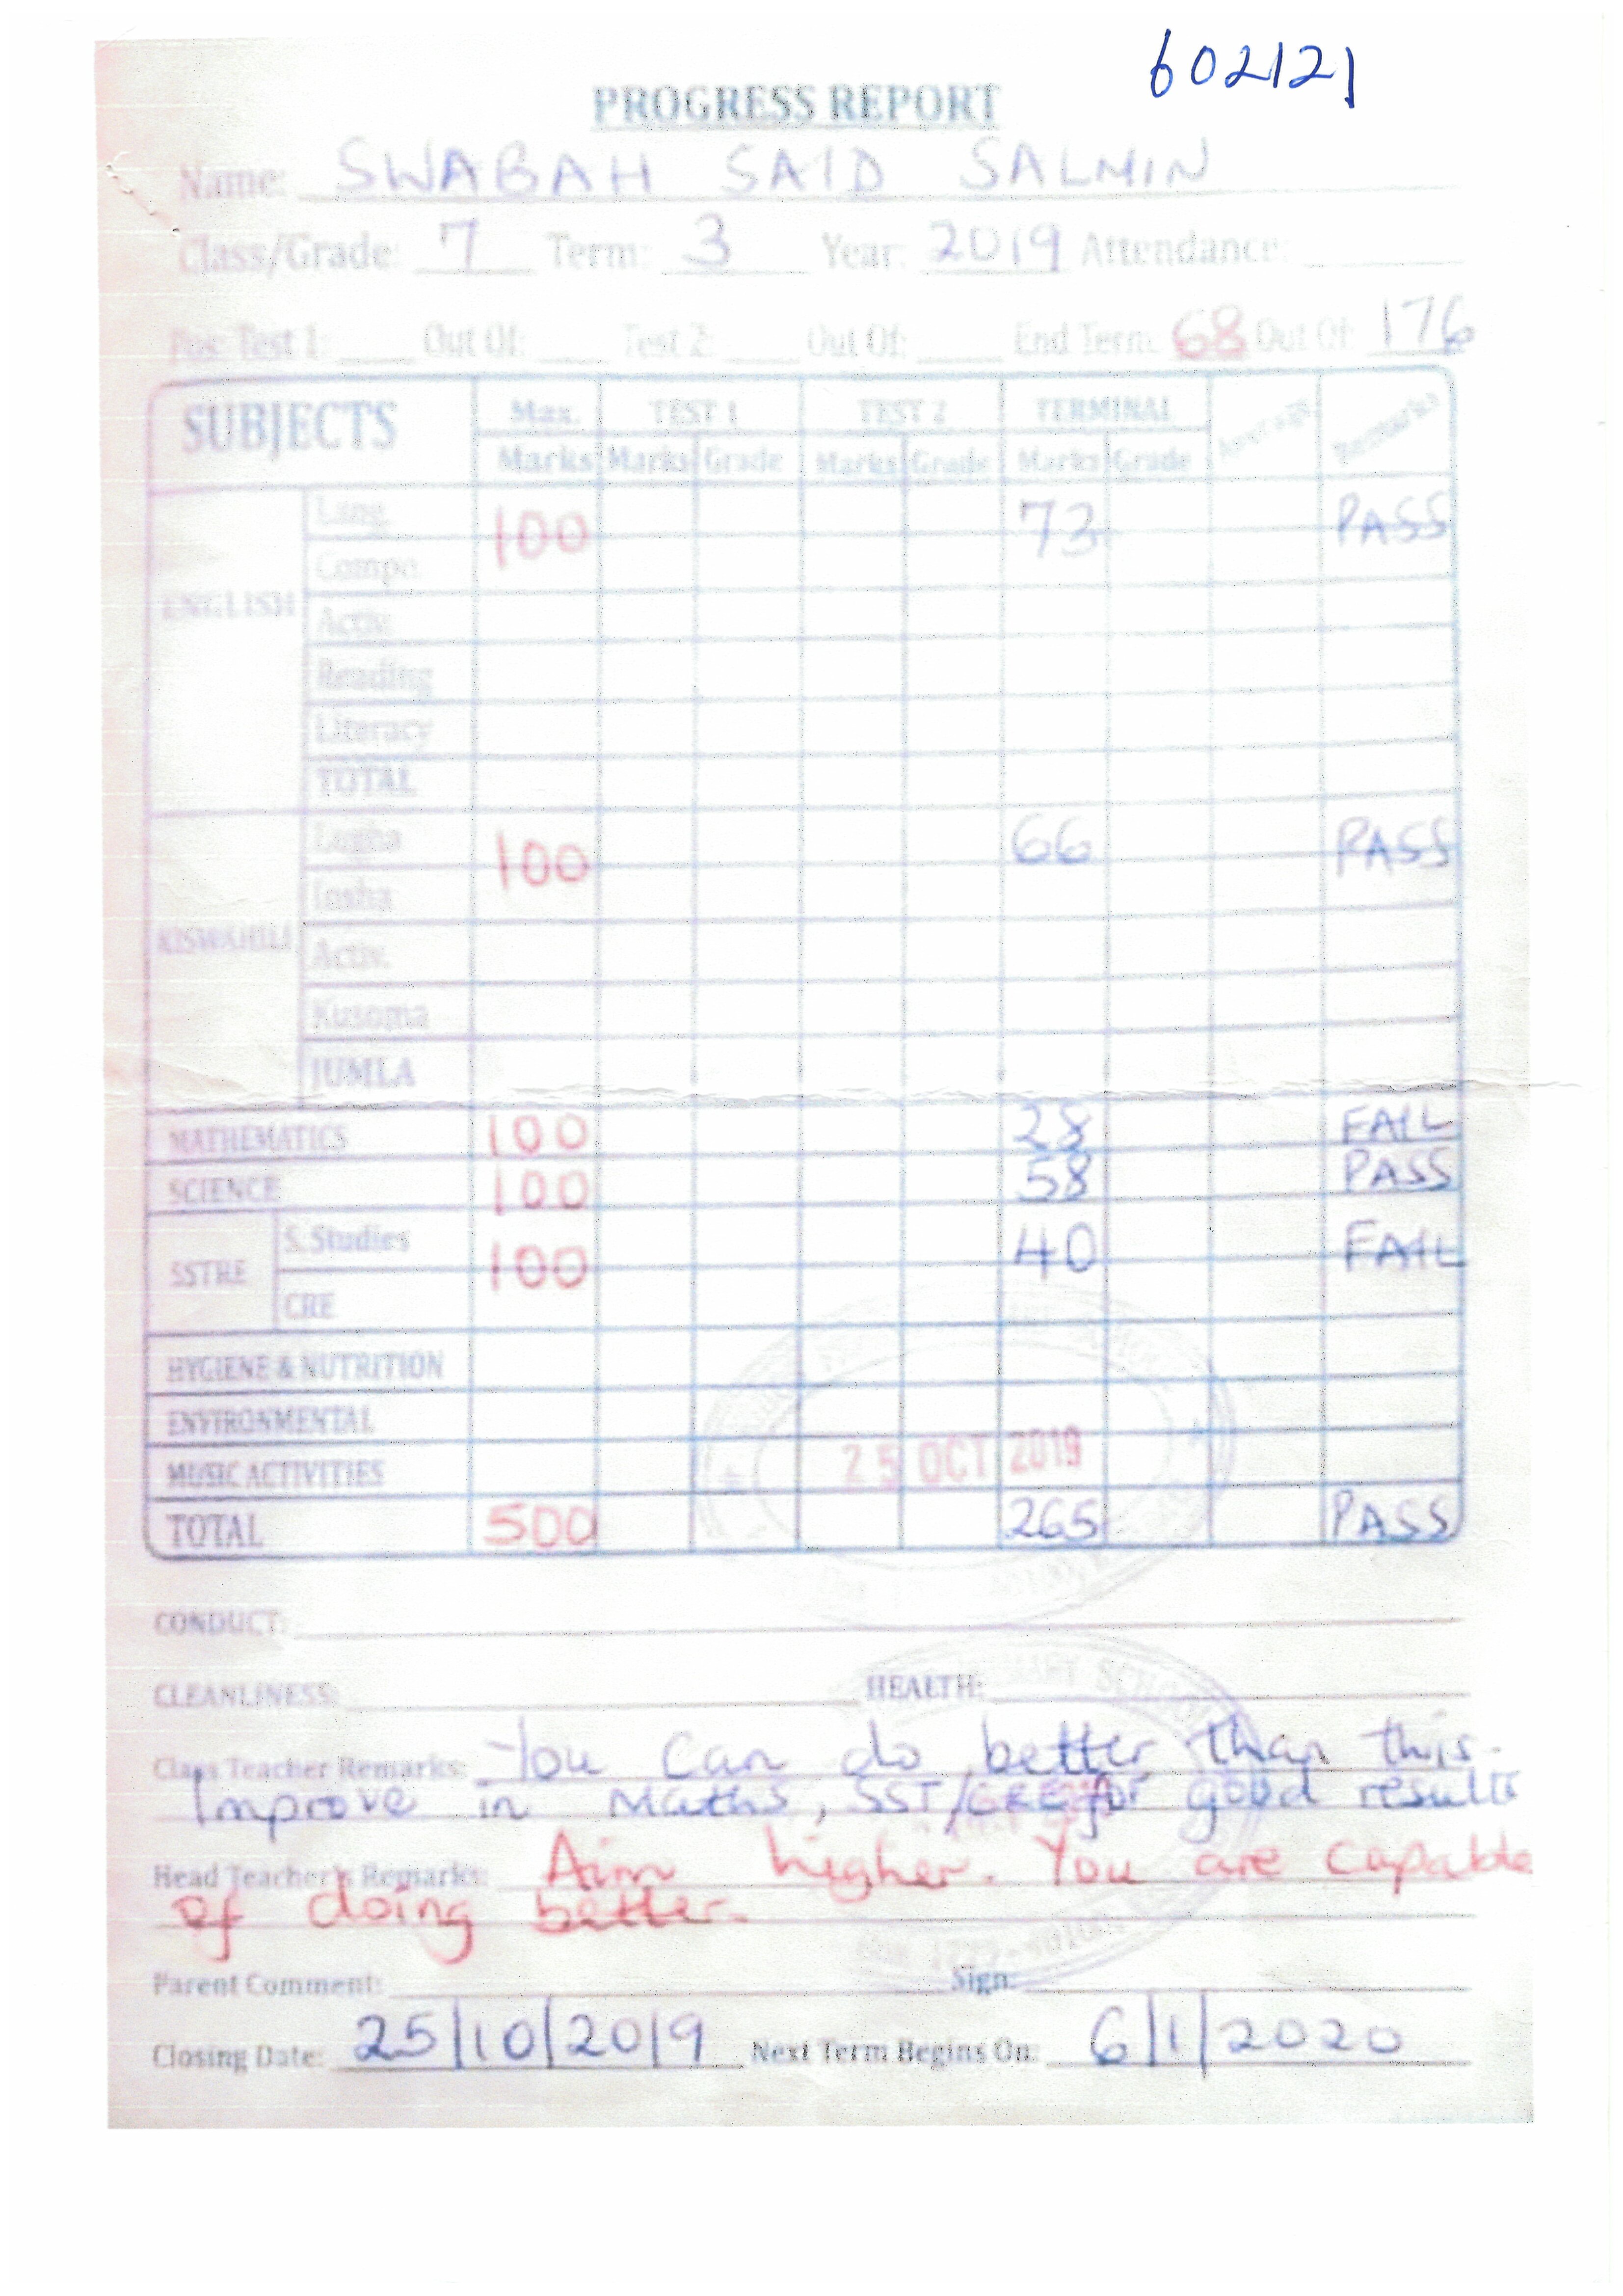 602121
PROGRESS REPORT
Name: SWABAH SAID SALMIN
Class/Grade: 7 Term: 3 Year: 2019 Attendance:
Pos: Test 1: Out Of: Test 2: Out Of: End Term: 68 Out Of: 176
SUBJECTS Max. TEST 1 TEST 2 TERMINAL Average Remarks
Marks Marks Grade Marks Grade Marks Grade
ENGLISH
Lang. 100 73 PASS
Compo.
Activ.
Reading
Literacy
TOTAL
KISWAHILI
Lugha 100 66 PASS
Insha
Activ.
Kusoma
JUMLA
MATHEMATICS 100 28 FAIL
SCIENCE 100 58 PASS
SSTRE
S. Studies 100 40 FAIL
CRE
HYGIENE & NUTRITION
ENVIRONMENTAL
MUSIC ACTIVITIES
25 OCT 2019
TOTAL 500 265 PASS
CONDUCT:
CLEANLINESS: HEALTH:
Class Teacher Remarks: You can do better than this.
Improve in Maths, SST/CRE for good results
Head Teacher's Remarks: Aim higher. You are capable
of doing better.
Parent Comment: Sign:
Closing Date: 25/10/2019 Next Term Begins On: 6/1/2020